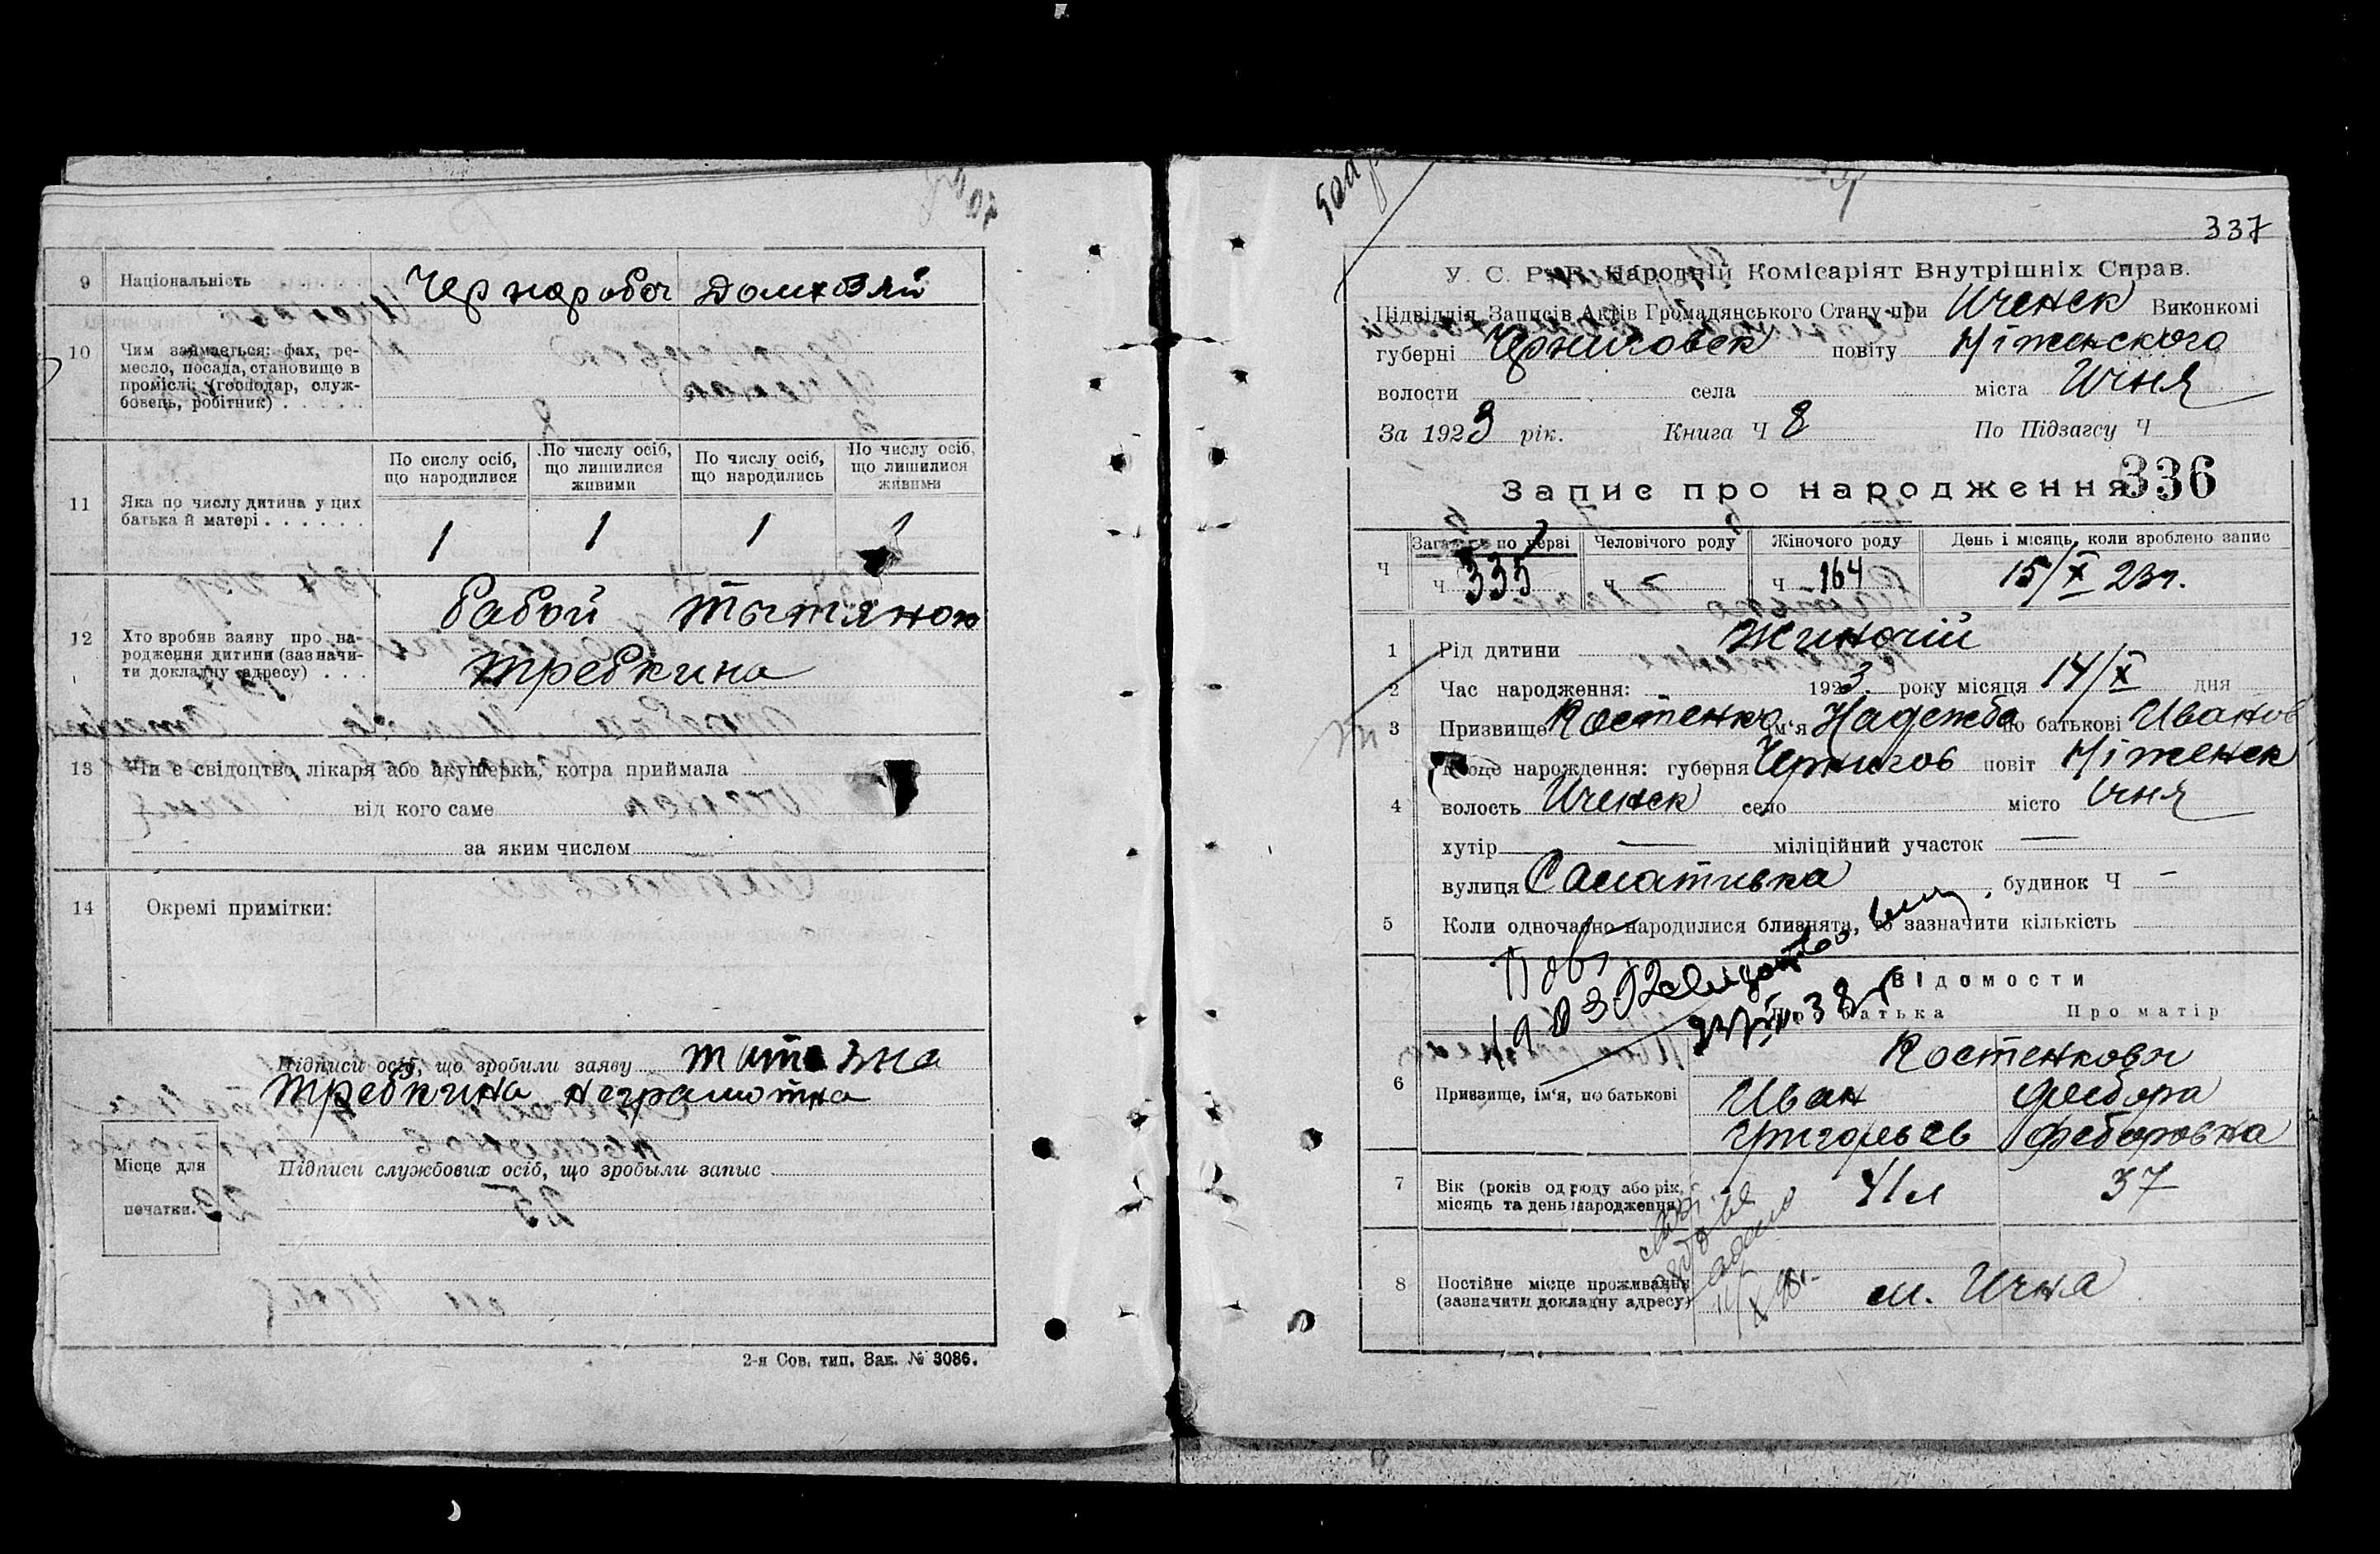 9 Національність Чернороboч Домхозяй
10 Чим займається: фах, ре-
месло, посада, становище в
проміслі: (господар, служ-
бовець, робітник)
По сислу осіб, що народилися
По числу осіб, що лишилися живими
По числу осіб, що народились
По числу осіб, що лишилися живими
11 Яка по числу дитина у цих
батька й матері
1 1 1 1
12 Хто зробив заяву про на-
родження дитини (зазначи-
ти докладну адресу)
бабой Тытяною
Требкина
13 Чи є свідоцтво лікаря або акушерки, котра приймала
від кого саме
за яким числом
14 Окремі примітки:
Підписи осіб, що зробили заяву Титязна
Требкина неграмотна
Підписи службових осіб, що зробыли запыс
Місце для
печатки.
2-я Сов. тип. Зак. № 3086.
337
У. С. Р. Р. Народній Комісаріят Внутрішніх Справ.
Підвідділ Записів Актів Громадянського Стану при Иченск Виконкомі
губерні Черниговск повіту Ніженского
волости села міста Ичня
За 1923 рік. Книга Ч 8 По Підзагсу Ч
Запис про народження 336
Ч
Загально по черзі
Ч 335
Человічого роду
Ч -
Жіночого роду
Ч 164
День і місяць, коли зроблено запис
15/X 23г.
1 Рід дитини Жиночій
2 Час народження: 1923 року місяця 14/X дня
3 Призвище Костенко ім'я Надежба по батькові Иванов
4 Місце нарождення: губерня Чернигов повіт Ніженск
волость Иченск село місто Ичня
хутір — міліційний участок —
вулиця Самативка будинок Ч -
5 Коли одночасно народилися близнята, то зазначити кількість
Відомости
Про батька Про матір
6 Призвище, ім'я, по батькові
Костенковы
Иван Федора
Григорьев Федоровна
7 Вік (років од роду або рік,
місяць та день народження)
41л 37
8 Постійне місце проживання
(зазначити докладну адресу)
м. Ична